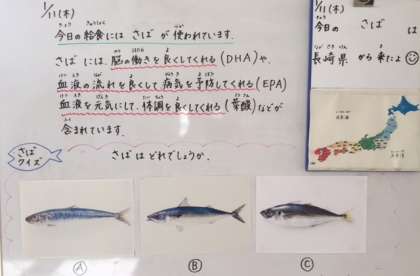 1/11(木)
今日の給食には さばが 使われています。
さばには、脳の働きを良くしてくれる(DHA)や、
血液の流れを良くして病気を予防してくれる(EPA)
血液を元気にして、体調を良くしてくれる(葉酸)などが
含まれています。
さばクイズ
さばはどれでしょうか。
Ⓐ
Ⓑ
Ⓒ
1/11(木)
今日の さば は
長崎県 から来たよ☺